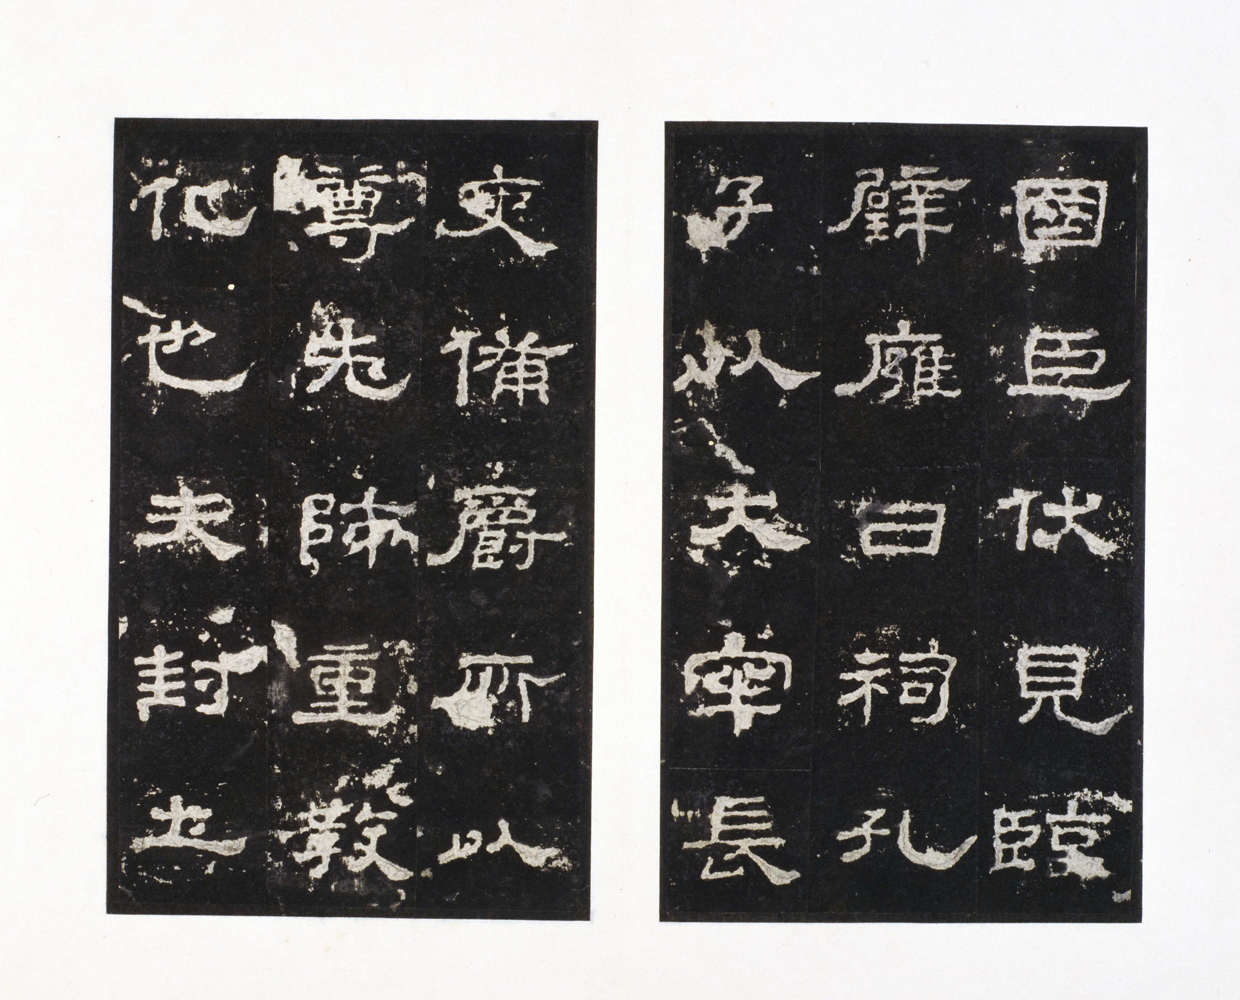 國臣伏見臨
璧雍日祠孔
子以大宰長
吏備爵所以
尊先師重教
化也夫封土